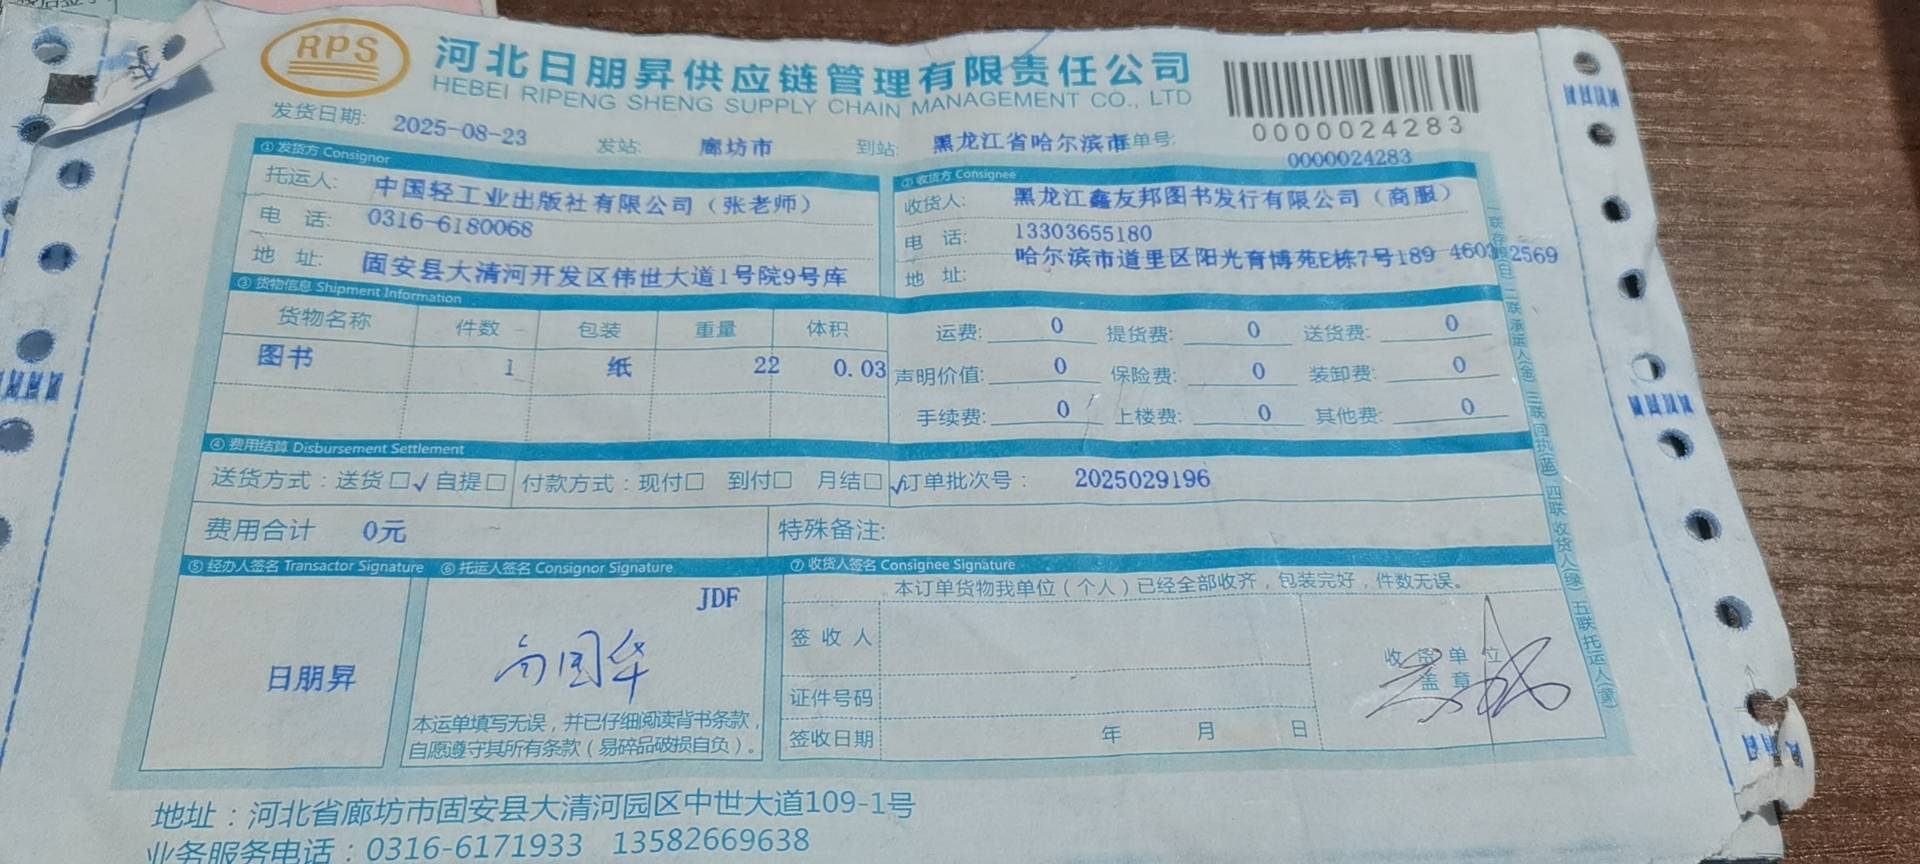 RPS
河北日朋昇供应链管理有限责任公司
HEBEI RIPENG SHENG SUPPLY CHAIN MANAGEMENT CO., LTD
0000024283
发货日期: 2025-08-23 发站: 廊坊市 到站: 黑龙江省哈尔滨市 单号: 0000024283
① 发货方 Consignor
托运人: 中国轻工业出版社有限公司（张老师）
电 话: 0316-6180068
地 址: 固安县大清河开发区伟世大道1号院9号库
② 收货方 Consignee
收货人: 黑龙江鑫友邦图书发行有限公司（商服）
电 话: 13303655180
地 址: 哈尔滨市道里区阳光育博苑E栋7号189 4603 2569
③ 货物信息 Shipment Information
货物名称 件数 包装 重量 体积
图书 1 纸 22 0.03
运费: 0 提货费: 0 送货费: 0
声明价值: 0 保险费: 0 装卸费: 0
手续费: 0 上楼费: 0 其他费: 0
④ 费用结算 Disbursement Settlement
送货方式：送货□√自提□ 付款方式：现付□ 到付□ 月结□√订单批次号： 2025029196
费用合计 0元 特殊备注:
⑤ 经办人签名 Transactor Signature ⑥ 托运人签名 Consignor Signature ⑦ 收货人签名 Consignee Signature
日朋昇
JDF
本运单填写无误，并已仔细阅读背书条款，
自愿遵守其所有条款（易碎品破损自负）。
本订单货物我单位（个人）已经全部收齐，包装完好，件数无误。
签 收 人
证件号码
签收日期 年 月 日
收 货 单 位
盖 章
二联承运人(金) 三联回执(蓝) 四联收货人(绿) 五联托运人(黄)
地址：河北省廊坊市固安县大清河园区中世大道109-1号
业务服务电话：0316-6171933 13582669638